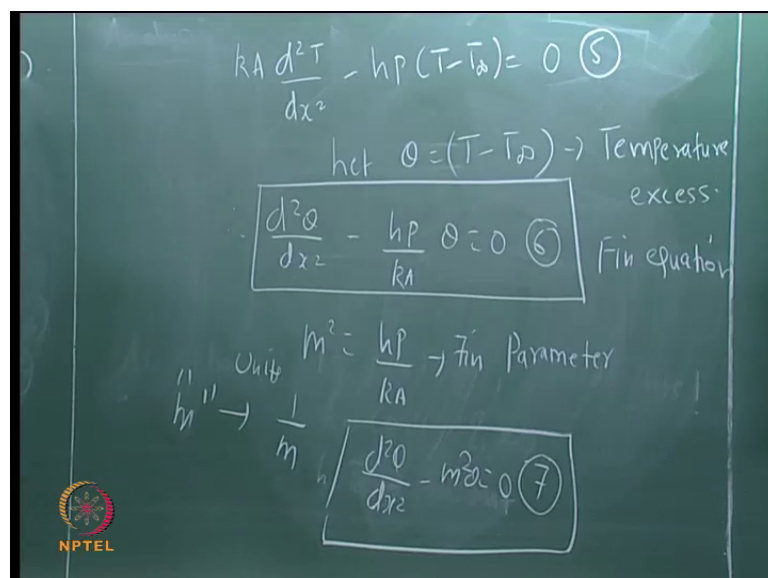 kA d²T/dx² - hP(T-T∞) = 0 (5)
Let θ = (T-T∞) → Temperature
excess.
d²θ/dx² - hP/kA θ = 0 (6) Fin equation
m² = hP/kA → Fin Parameter
Unit
"m" → 1/m
d²θ/dx² - m²θ = 0 (7)
NPTEL